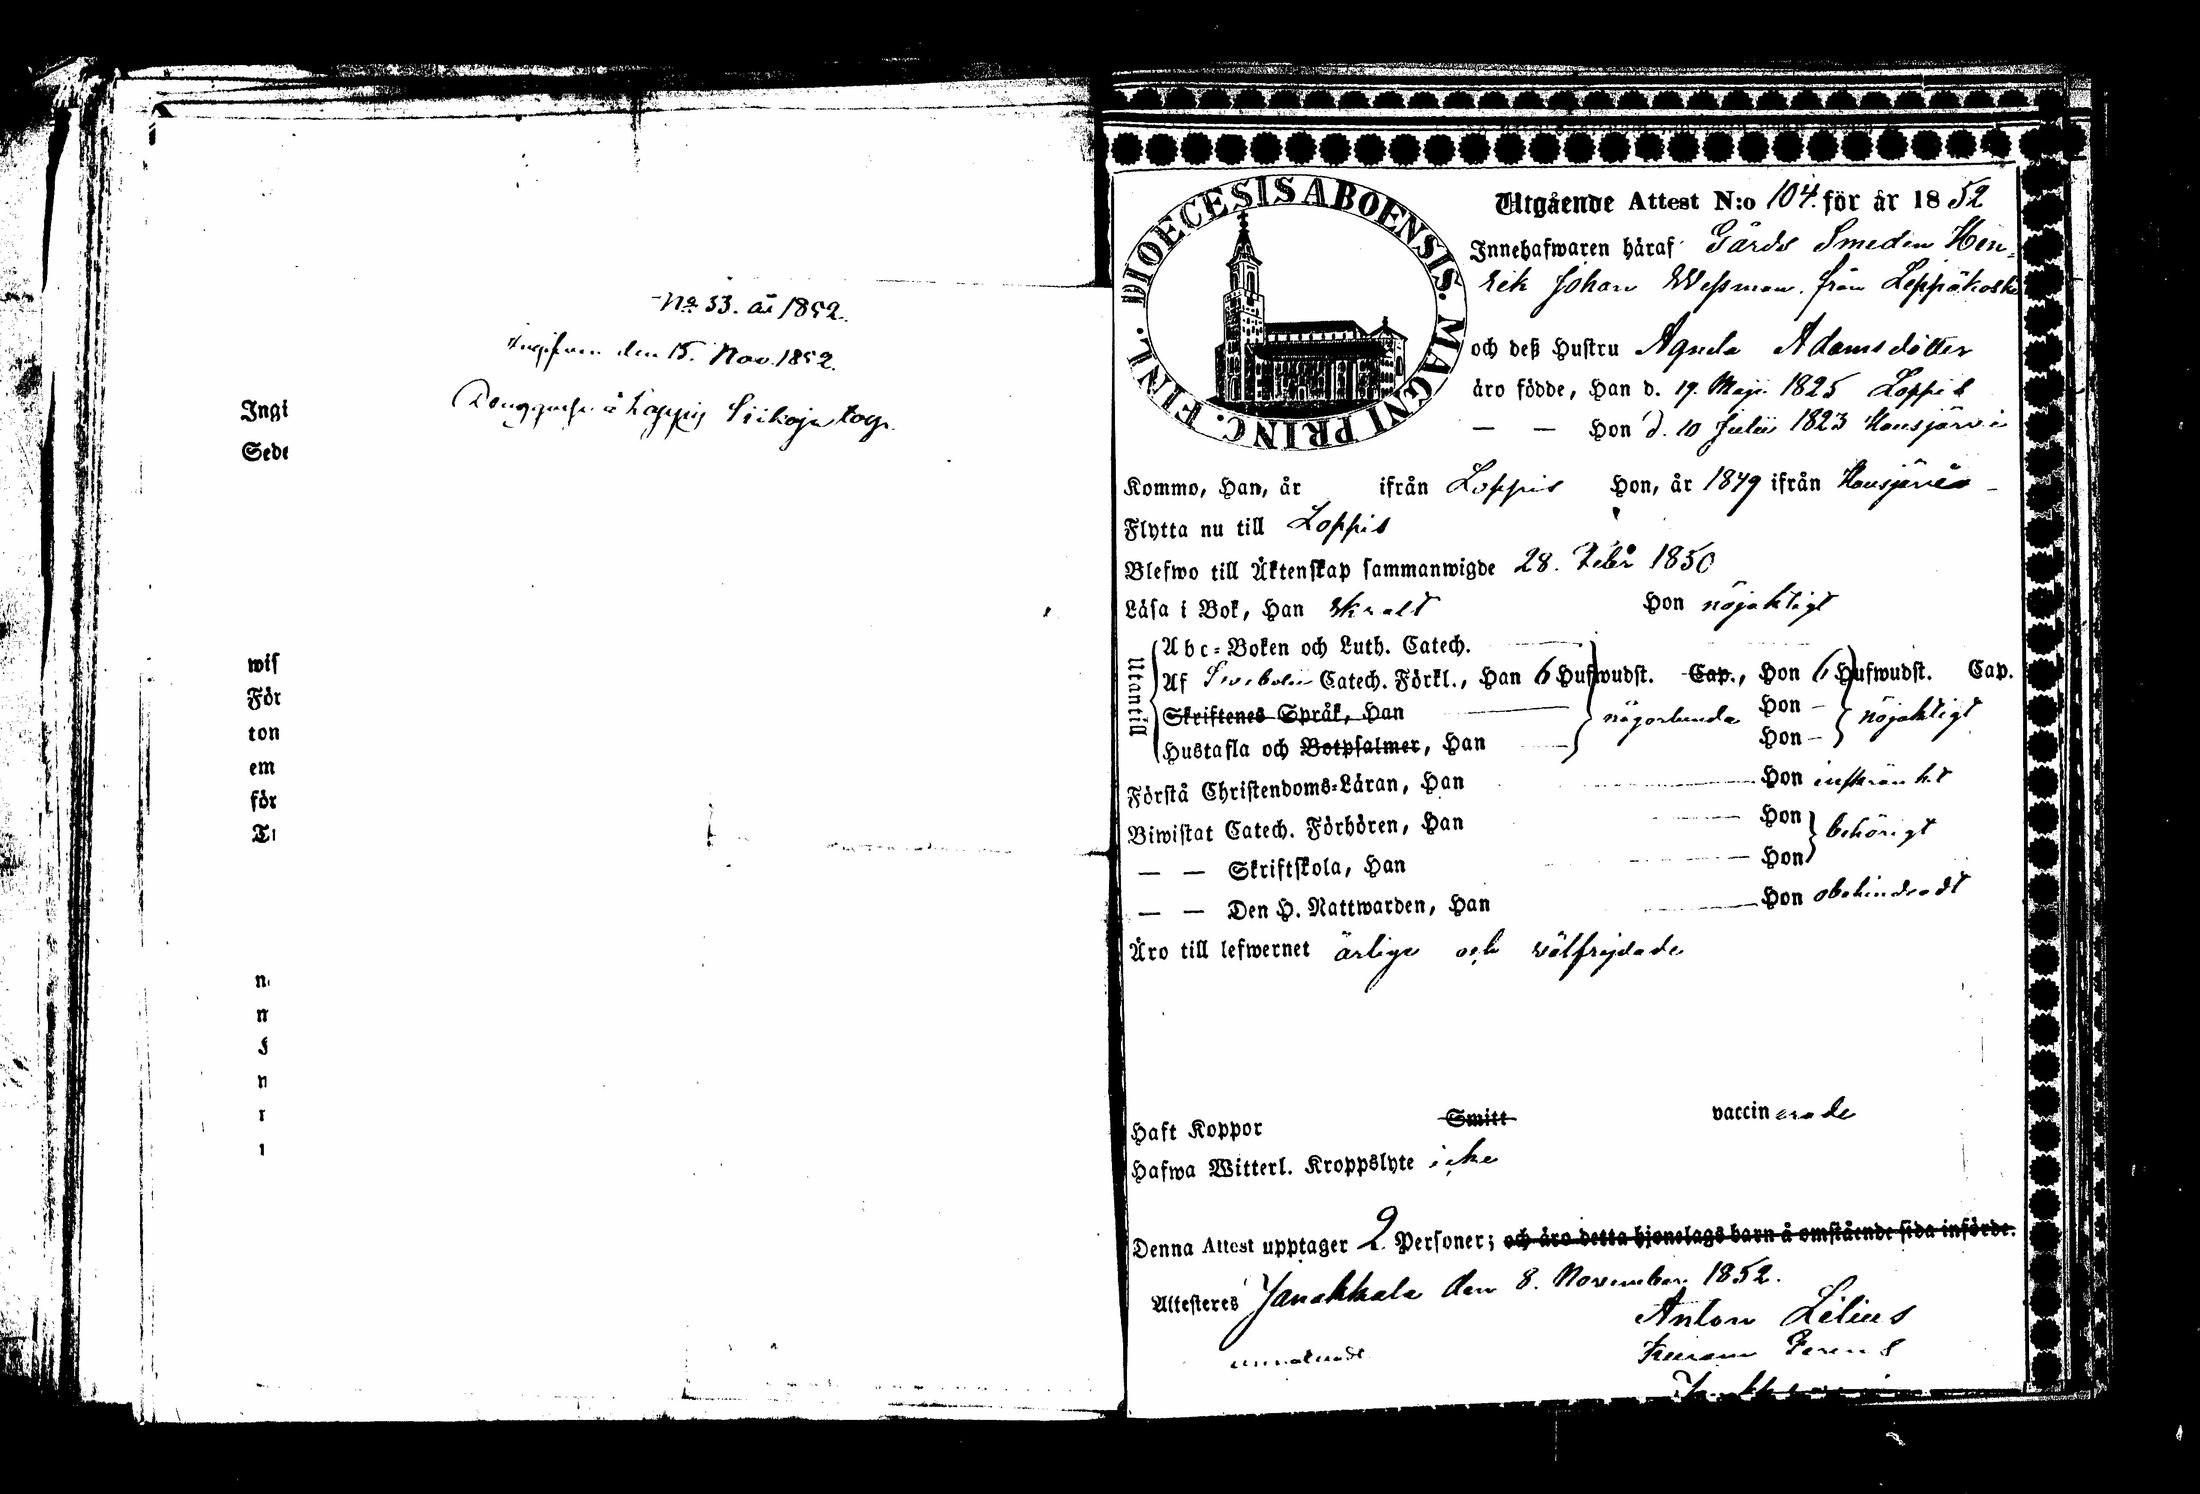 No 33. år 1852.
den 15. Nov. 1852.
Loppis
Ingi
Sede
wis
För
ton
em
för
DIOECESIS ABOENSIS. MAGNI PRINC. FINL.
Utgående Attest N:o 104. för år 1852
Innehafwaren häraf Gårds Smeden Hen-
rik Johan Wessman från Leppäkoski
och deß Hustru Agneta Adamsdotter
äro födde, Han d. 19. Maji 1825 Loppis
— — Hon d. 10 Julii 1823 Hausjärvi
Kommo, Han, år ifrån Loppis Hon, år 1849 ifrån Hausjärvi
Flytta nu till Loppis
Blefwo till Äktenskap sammanwigde 28. Febr 1850
Läsa i Bok, Han Hon nöjaktigt
Utantill
Abc-Boken och Luth. Catech.
Af Svebelii Catech. Förkl., Han 6 Hufwudst. Cap., Hon 6 Hufwudst. Cap.
Skriftenes Språk, Han Hon nöjaktigt
Hustafla och Botpsalmer, Han Hon
Förstå Christendoms-Läran, Han Hon inskränkt
Biwistat Catech. Förhören, Han Hon behörigt
— — Skriftskola, Han Hon
— — Den H. Nattwarden, Han Hon obehindradt
Äro till lefwernet ärlige och välfrejdade
Haft Koppor Smitt vaccinerade
Hafwa Witterl. Kroppslyte icke
Denna Attest upptager 2 Personer; och äro detta hjonelags barn å omstående sida införde.
Attesteres Janakkala den 8. November 1852.
Anton Lilius